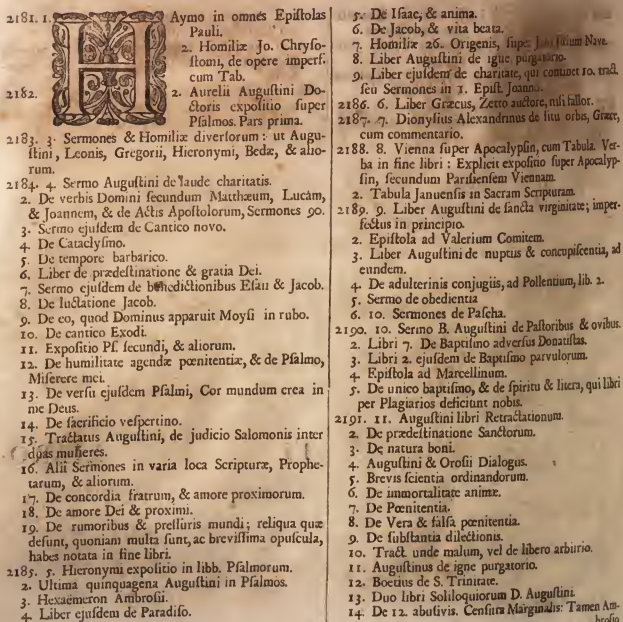 2181. 1. HAymo in omnes Epiſtolas
Pauli.
2. Homiliæ Jo. Chryſo-
ſtomi, de opere imperf.
cum Tab.
2182. 2. Aurelii Auguſtini Do-
ctoris expoſitio ſuper
Pſalmos. Pars prima.
2183. 3. Sermones & Homiliæ diverſorum: ut Augu-
ſtini, Leonis, Gregorii, Hieronymi, Bedæ, & alio-
rum.
2184. 4. Sermo Auguſtini de laude charitatis.
2. De verbis Domini ſecundum Matthæum, Lucam,
& Joannem, & de Actis Apoſtolorum, Sermones 90.
3. Sermo ejuſdem de Cantico novo.
4. De Cataclyſmo.
5. De tempore barbarico.
6. Liber de prædeſtinatione & gratia Dei.
7. Sermo ejuſdem de benedictionibus Eſau & Jacob.
8. De luctatione Jacob.
9. De eo, quod Dominus apparuit Moyſi in rubo.
10. De cantico Exodi.
11. Expoſitio Pſ. ſecundi, & aliorum.
12. De humilitate agendæ pœnitentiæ, & de Pſalmo,
Miſerere mei.
13. De verſu ejuſdem Pſalmi, Cor mundum crea in
me Deus.
14. De ſacrificio veſpertino.
15. Tractatus Auguſtini, de judicio Salomonis inter
duas mulieres.
16. Alii Sermones in varia loca Scripturæ, Prophe-
tarum, & aliorum.
17. De concordia fratrum, & amore proximorum.
18. De amore Dei & proximi.
19. De rumoribus & preſſuris mundi; reliqua quæ
deſunt, quoniam multa ſunt, ac breviſſima opuſcula,
habes notata in fine libri.
2185. 5. Hieronymi expoſitio in libb. Pſalmorum.
2. Ultima quinquagena Auguſtini in Pſalmos.
3. Hexaëmeron Ambroſii.
4. Liber ejuſdem de Paradiſo.
5. De Iſaac, & anima.
6. De Jacob, & vita beata.
7. Homiliæ 26. Origenis, ſuper Nave.
8. Liber Auguſtini de igne purgatorio.
9. Liber ejuſdem de charitate, qui continet 10. tract.
ſeu Sermones in 1. Epiſt. Joann.
2186. 6. Liber Græcus, Zetto auctore, niſi fallor.
2187. 7. Dionyſius Alexandrinus de ſitu orbis, Græce,
cum commentario.
2188. 8. Vienna ſuper Apocalypſin, cum Tabula. Ver-
ba in fine libri: Explicit expoſitio ſuper Apocalyp-
ſin, ſecundum Pariſienſem Viennam.
2. Tabula Januenſis in Sacram Scripturam.
2189. 9. Liber Auguſtini de ſancta virginitate; imper-
fectus in principio.
2. Epiſtola ad Valerium Comitem.
3. Liber Auguſtini de nuptus & concupiſcentia, ad
eundem.
4. De adulterinis conjugiis, ad Pollentium, lib. 2.
5. Sermo de obedientia
6. 10. Sermones de Paſcha.
2190. 10. Sermo B. Auguſtini de Paſtoribus & ovibus.
2. Libri 7. De Baptiſmo adverſus Donatiſtas.
3. Libri 2. ejuſdem de Baptiſmo parvulorum.
4. Epiſtola ad Marcellinum.
5. De unico baptiſmo, & de ſpiritu & litera, qui libri
per Plagiarios deficiunt nobis.
2191. 11. Auguſtini libri Retractationum.
2. De prædeſtinatione Sanctorum.
3. De natura boni.
4. Auguſtini & Oroſii Dialogus.
5. Brevis ſcientia ordinandorum.
6. De immortalitate animæ.
7. De Pœnitentia.
8. De Vera & falſa pœnitentia.
9. De ſubſtantia dilectionis.
10. Tract. unde malum, vel de libero arbitrio.
11. Auguſtinus de igne purgatorio.
12. Boetius de S. Trinitate.
13. Duo libri Soliloquiorum D. Auguſtini.
14. De 12. abuſivis. Cenſura Marginalis: Tamen Am-
broſio